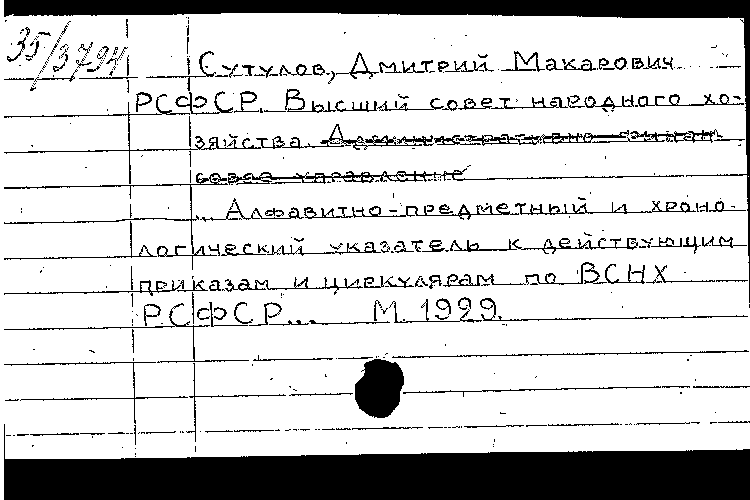 35/3794
Сутулов, Дмитрий Макарович
РСФСР. Высший совет народного хо-
зяйства. Административно-финан
совое управление
... Алфавитно-предметный и хроно-
логический указатель к действующим
приказам и циркулярам по ВСНХ
РСФСР... М. 1929.